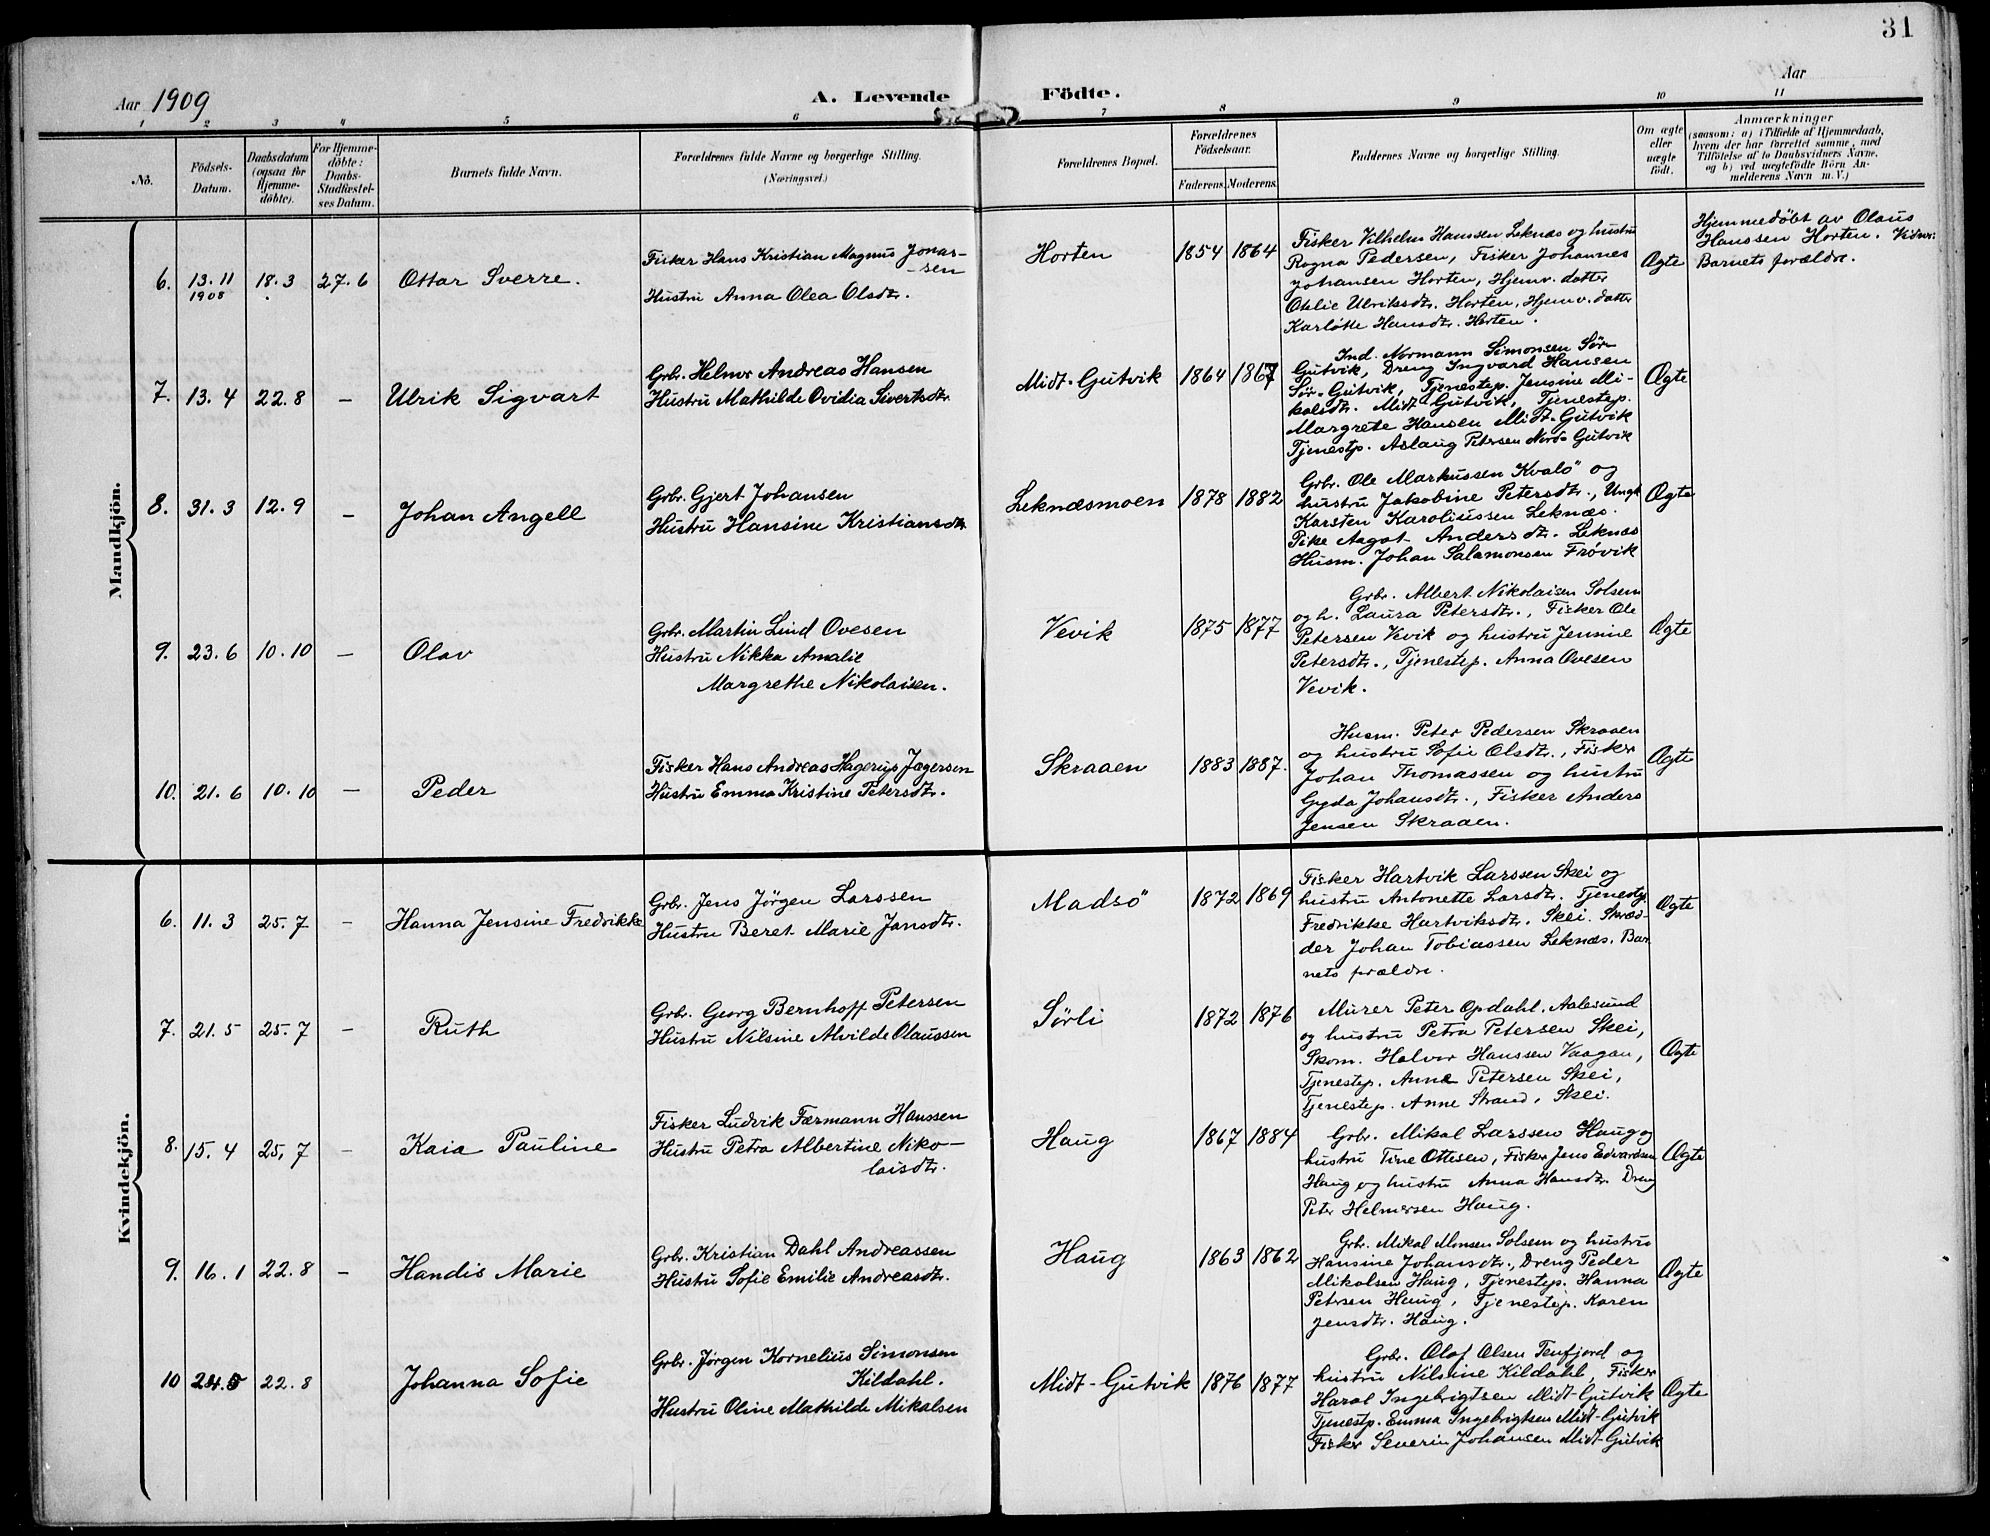 31
Aar 1909
A. Levende Födte.
Aar
1 2 3 4 5 6 7 8 9 10 11
No.
Födsels-Datum.
Daabsdatum (ogsaa for Hjemme-döbte).
For Hjemme-döbte: Daabs-Stadfæstel-ses Datum.
Barnets fulde Navn.
Forældrenes fulde Navne og borgerlige Stilling.
(Næringsvei.)
Forældrenes Bopæl.
Forældrenes Födselsaar.
Faderens. Moderens.
Faddernes Navne og borgerlige Stilling.
Om ægte eller uægte født.
Anmærkninger
(saasom: a) i Tilfælde af Hjemmedaab,
hvem der har forrettet samme, med
Tilföielse af to Daabsvidners Navne,
og b) ved uægtefödte Börn An-
melderens Navn m. V.)
Mandkjön.
6. 13.11 1908 18.3 27.6 Ottar Sverre.
Fisker Hans Kristian Magnus Jonas-
-sen
Hustru Anna Olea Olsdt.
Horten 1854 1864
Fisker Vilhelm Hanssen Leknæs og hustru
Ragna Pedersen, Fisker Johannes
Johansen Horten, Hjemv. datter
Otelie Ulriksdtr. Horten, Hjemv. datter
Karlotte Hansdtr. Horten.
Ægte
Hjemmedöbt av Olaus
Hanssen Horten. Vidner:
Barnets forældre.
7. 13.4 22.8 – Ulrik Sigvart
Grb. Helmer Andreas Hansen
Hustru Mathilde Ovidia Sivertsdtr.
Midt-Gutvik 1864 1867
Ind. Normann Simonsen Sør-
Gutvik, Dreng Ingvard Hansen
Sør-Gutvik, Tjenestep. Jensine Mi-
kalsdtr. Midt Gutvik, Tjenestep.
Margrete Hansen Midt-Gutvik
Tjenestp. Aslaug Petersen Nordr Gutvik
Ægte
8. 31.3 12.9 – Johan Angell
Grb. Gjert Johansen
Hustru Hansine Kristiansdtr
Leknæsmoen 1878 1882
Grb. Ole Markussen Kvalö og
hustru Jakobine Petersdtr., Ungk
Karsten Karoliussen Leknæs.
Pike Aagot Andersdtr. Leknæs
Husm. Johan Salamonsen Frövik
Ægte
9. 23.6 10.10 – Olav
Grb. Martin Lind Ovesen
Hustru Nikka Amalie
Margrethe Nikolaisen.
Vevik 1875 1877
Grb. Albert Nikolaisen Solsem
og h. Laura Petersdtr., Fisker Ole
Petersen Vevik og hustru Jensine
Petersdtr., Tjenestep. Anna Ovesen
Vevik.
Ægte
10. 21.6 10.10 – Peder
Fisker Hans Andreas Hagerup Jægersen
Hustru Emma Kristine Petersdtr.
Skraaen 1883 1887.
Husm. Peter Pedersen Skraaen
og hustru Sofie Olsdtr., Fisker
Johan Thomassen og hustru
Gyda Johansdtr., Fisker Anders
Jensen Skraaen.
Ægte
Kvindekjön.
6. 11.3 25.7 – Hanna Jensine Fredrikke
Grb. Jens Jörgen Larssen
Hustru Beret Marie Jansdtr.
Madsö 1872 1869
Fisker Hartvik Larssen Skei og
hustru Antonette Larsdtr. Tjenestp.
Fredrikke Hartviksdtr. Skei. Skræd-
der Johan Tobiassen Leknæs. Bar-
nets forældre.
Ægte
7. 21.5 25.7 – Ruth
Grb. Georg Bernhoff Petersen
Hustru Nilsine Alvilde Olaussen
Sörli 1872 1876
Murer Peter Opdahl, Aalesund
og hustru Petra Petersen Skei,
Skom. Halvor Hanssen Vaagan,
Tjenestep. Anne Petersen Skei,
Tjenestep. Anne Strand, Skei.
Ægte
8. 15.4 25.7 – Kaia Pauline
Fisker Ludvik Færmann Hanssen
Hustru Petra Albertine Niko-
laisdtr.
Haug 1867 1884
Grb. Mikal Larssen Haug og
hustru Tine Ottesen, Fisker Jens Edvardsen
Haug og hustru Anna Hansdtr. Dreng
Peter Helmersen Haug.
Ægte
9. 16.1 22.8 – Handis Marie
Grb. Kristian Dahl Andreassen
Hustru Sofie Emilie Andreasdtr.
Haug 1863 1862
Grb. Mikal Monsen Solsem og hustru
Hansine Johansdtr., Dreng Peder
Mikalsen Haug, Tjenestep. Hanna
Petersen Haug, Tjenestep. Karen
Jensdtr. Haug.
Ægte
10 24.5 22.8 Johanna Sofie
Grb. Jörgen Kornelius Simonsen
Kildahl.
Hustru Oline Mathilde Mikalsen
Midt-Gutvik 1876 1877
Grb. Olaf Olsen Terfjord og
hustru Nilsine Kildahl, Fisker
Haral Ingebrigtsen Midt-Gutvik
Tjenestp. Emma Ingebrigtsen Midt-Gutvik
Fisker Severin Johansen Midt-Gutvik
Ægte